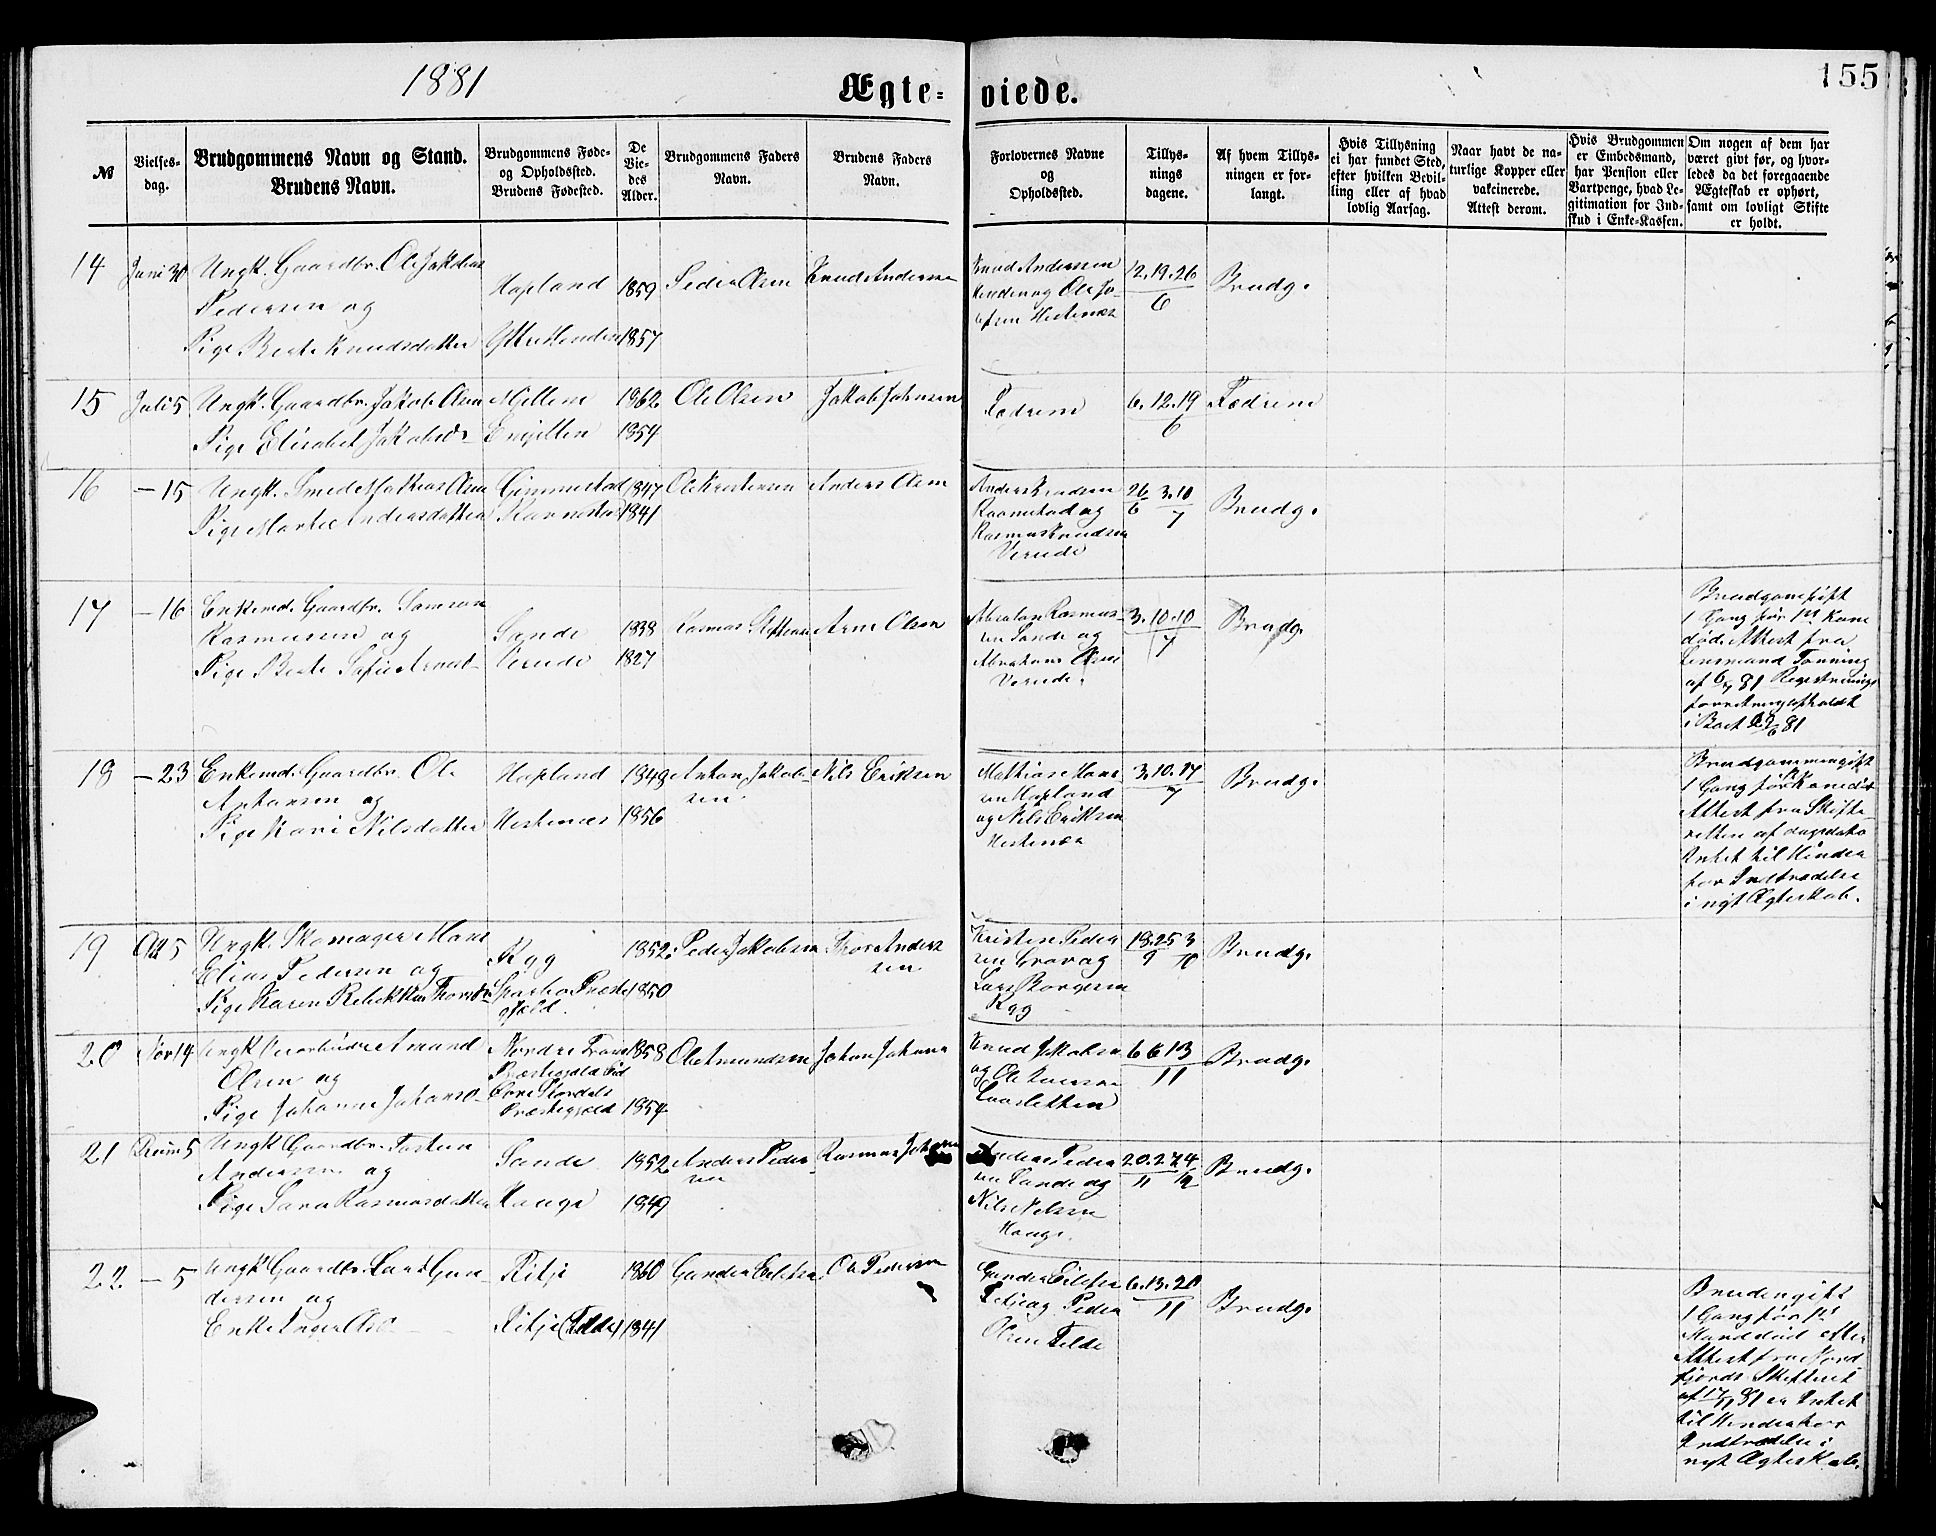 1881
Ægte-
viede.
155
№
Vielses-
dag.
Brudgommens Navn og Stand.
Brudens Navn.
Brudgommens Føde-
og Opholdssted.
Brudens Fødested.
De
Vie-
des
Alder.
Brudgommens Faders
Navn.
Brudens Faders
Navn.
Forlovernes Navne
og
Opholdssted.
Tillys-
nings
dagene.
Af hvem Tillys-
ningen er for-
langt.
Hvis Tillysning
ei har fundet Sted,
efter hvilken Bevil-
ling eller af hvad
lovlig Aarsag.
Naar havt de na-
turlige Kopper eller
vakcinerede.
Attest derom.
Hvis Brudgommen
er Embedsmand,
har Pension eller
Vartpenge, hvad Le-
gitimation for Ind-
skud i Enke-Kassen.
Om nogen af dem har
været givt før, og hvor-
ledes da det foregaaende
Ægteskab er ophørt,
samt om lovligt Skifte
er holdt.
14
Juni 30
Ungk. Gaardbr. Ole Jakobus
Pedersen og
Pige Berte Knudsdatter
Hopland
1859
1857
Peder Olsen
Knud Andersen
Knud Andersen
og Ole Jo-
Hestenæs
12.19.26
6
Brudg.
15
Juli 5
Ungk. Gaardbr. Jakob Olsen
Pige Elisabet Jakobsd.
1862
1854
Ole Olsen
Jakob Johnsen
Fædrene
6.12.19
6
Fædrene
16
—15
Ungk. Smed Mathias Olsen
Pige Marte Andersdatter
Gimmestad
1847
1841
Ole Kristensen
Anders Olsen
Anders Knudsen
og
Rasmus Knudsen
Verede
26 3.10
6 7
Brudg.
17
—16
Enkemd. Gaardbr. Samson
Rasmussen og
Pige Berte Sofie Arnesd.
Sande
Verede
1838
1827
Rasmus
Arne Olsen
Absalon Rasmus-
sen Sande og
Abraham
Verede.
3.10.10
7
Brudg.
Brudgom gift
1 Gang før 1ste Kone
død. Attest fra
Lensmand Tonning
af 6/7 81 Registrerings
forretning afholdt
81
18
—23
Enkemd. Gaardbr. Ole
Antonsen og
Pige Kari Nilsdatter
Hopland
Hestenæs
1849
1856
Anton Jakob-
sen
Nils Eriksen
Mathias Hans-
sen Hopland
og Nils Eriksen
Hestenæs
3.10.17
7
Brudg.
Brudgommen gift
1 Gang før Kone død
Attest fra Skifte-
retten af dagsdato
Intet til Hinder
for Indtrædelse
i nyt Ægteskab.
19
Okt 5
Ungk. Skomager Hans
Elias Pedersen og
Pige Karen Rebekka Thoresd.
Rygg
Sparbo Præste-
gjeld.
1852
1850
Peder Jakobsen
Thore Anders
sen
Kristen Peder
sen og
Lars
Rygg
18.25 3
9 10
Brudg.
20
Nov 14
Ungk. Amund
Olsen og
Pige Johanne Johansd.
Nordre
Præstegjeld
Præstegjeld
1858
1854
Ole Amundsen
Johan Johans
Knud Jakobsen
og Ole
6 6 13
11
Brudg.
21
Decem 5
Ungk Gaardbr. Torsten
Andersen og
Pige Sara Rasmusdatter
Sande
Hauge
1852
1849
Anders Peder
sen
Rasmus Johansen
Anders Peder
sen Sande og
Nils Nelsen
Hauge.
20.27 4
11 12
Brudg.
22
— 5
Ungk Gaardbr. Lars Gun-
dersen og
Enke Inger Olsd
1860
1841
Gunder
Ole Pedersen
Gunder
og Peder
Olsen Felde
6.13.20
11
Brudg.
Bruden gift
1 Gang før 1ste
Mand død efter
Attest fra Nord
fjords Skifteret
af 17/11 81 er Intet
til Hinder for
Indtrædelse i
nyt Ægteskab.